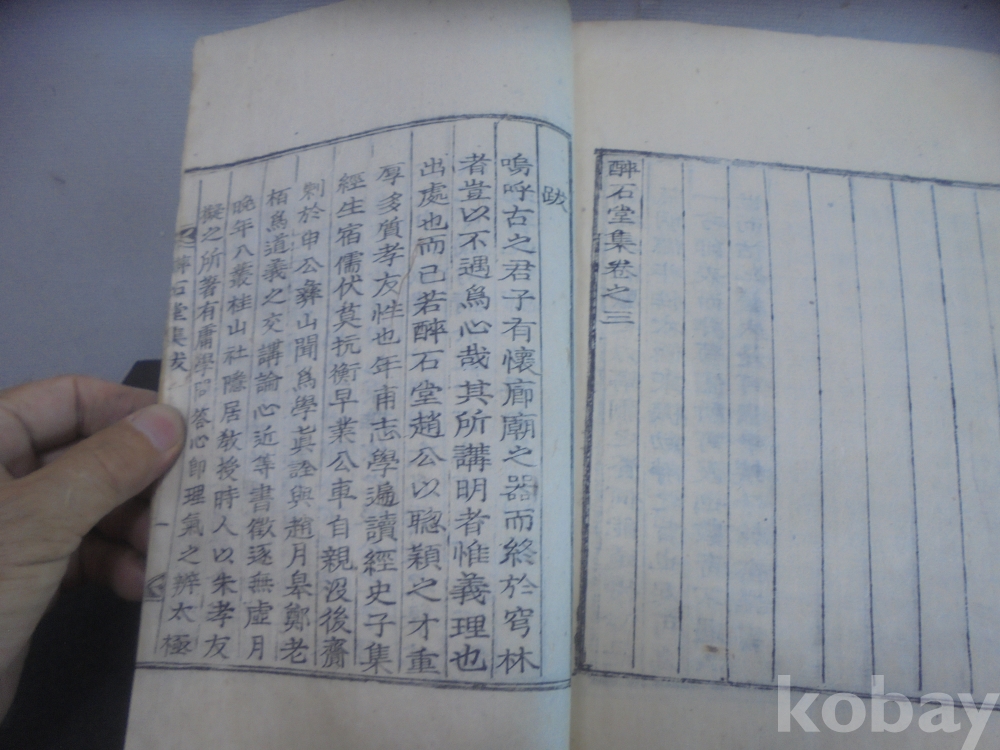 醉石堂集卷之三
跋
嗚呼古之君子有懷廊廟之器而終於窮林
者豈以不遇爲心哉其所講明者惟義理也
出處也而已若醉石堂趙公以聰穎之才重
厚多質孝友性也年甫志學遍讀經史子集
經生宿儒伏莫抗衡早業公車自親沒後齋
刺於申公彝山聞爲學眞詮與趙月皋鄭老
栢爲道義之交講論心近等書徵逐無虛月
晩年八叢桂山社隱居敎授時人以朱孝友
擬之所著有庸學問答心卽理氣之辨太極
醉石堂集跋
一
kobay